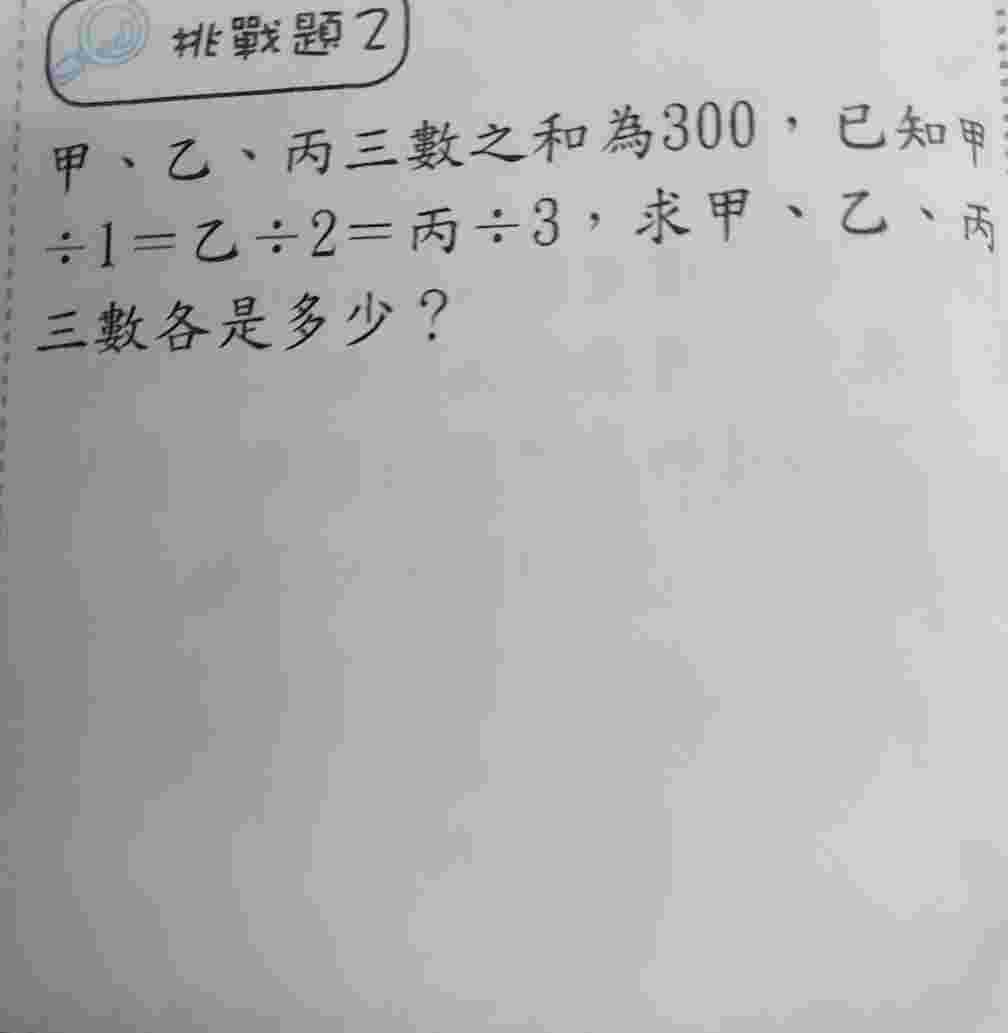 挑戰題2
甲、乙、丙三數之和為300，已知甲
÷1＝乙÷2＝丙÷3，求甲、乙、丙
三數各是多少？